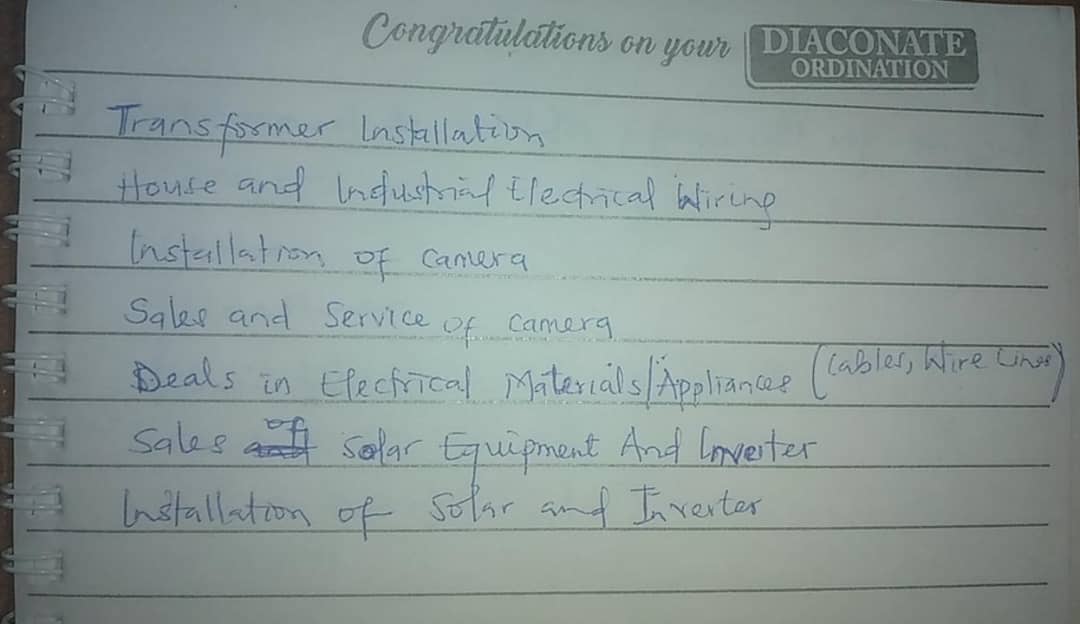 Congratulations on your DIACONATE ORDINATION
Transformer Installation
House and Industrial Electrical Wiring
Installation of camera
Sales and Service of camera
Deals in Electrical Materials/Appliances (Cables, Wire Lines)
Sales of Solar Equipment And Inverter
Installation of Solar and Inverter